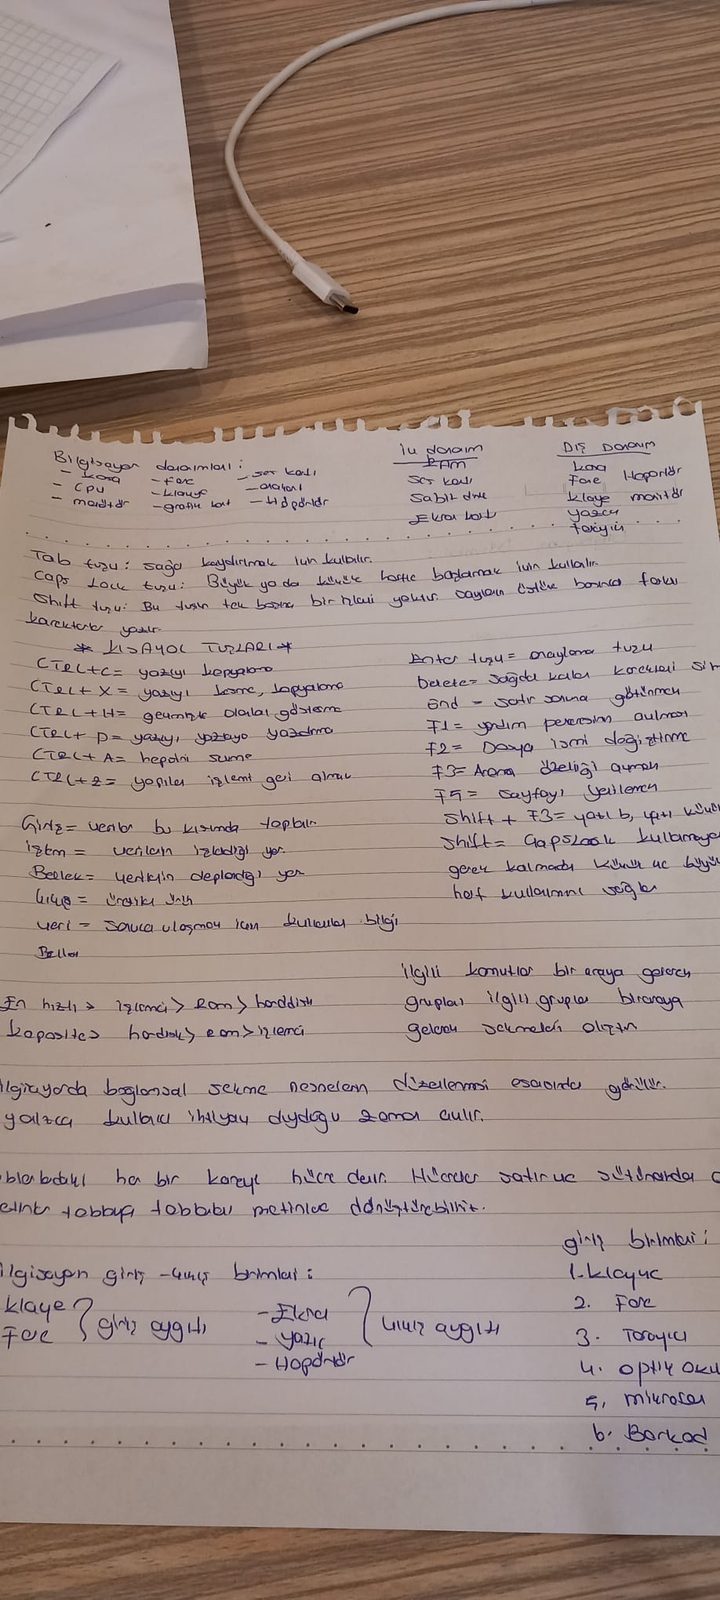 Bilgisayar donanımları:
- kasa - fare - ses kartı
- CPU - klavye - anakart
- monitör - grafik kart - Hopörlör
İç donanım
RAM
Ses kartı
Sabit disk
Ekran kartı
DIŞ Donanım
kasa
Fare Hoparlör
klavye monitör
yazıcı
tarayıcı
Tab tuşu: sağa kaydırmak için kullanılır.
Caps Lock tuşu: Büyük ya da küçük harfle başlamak için kullanılır.
Shift tuşu: Bu tuşun tek başına bir işlevi yoktur. sayıların üstüne basınca farklı
karakterler yazılır
* KISAYOL TUŞLARI *
CTRL+C= yazıyı kopyalama
CTRL+X= yazıyı kesme, kopyalama
CTRL+H= geçmişte olanları gösterme
CTRL+P= yazıyı yazıcıya yazdırma
CTRL+A= hepsini seçme
CTRL+Z= yapılan işlemi geri almak
Enter tuşu= onaylama tuşu
Delete= sağda kalan karakteri
End = satır sonuna götürmek
F1= yardım penceresini açılması
F2= Dosya ismi değiştirme
F3= Arama özelliği açmak
F5= sayfayı yenilemek
Shift + F3= yazı b,
Shift= CapsLock kullanmaya
gerek kalmadan küçük ve büyü
harf kullanımını sağlar
Giriş= veriler bu kısımda toplanır
işlem = verilerin işlendiği yer
Bellek= verilerin depolandığı yer
çıkış = üretilen ürün
veri = sonuca ulaşmak için kullanılan bilgi
Bellek
En hızlı> işlemci> Ram> harddisk
kapasite> hardisk> ram> işlemci
ilgili komutlar bir araya gelerek
grupları ilgili gruplar biraraya
gelerek sekmeleri oluştur
ilgisayarda bağlamsal sekme nesnelerin düzenlenmesi esasında görülür.
yalnızca kullanıcı ihtiyacı duyduğu zaman açılır.
her bir kareye hücre denir. Hücreler satır ve sütunlardan
tabloya tabloları metinlere dönüştürebilir.
ilgisayarın giriş - çıkış birimleri:
klavye
Fare } giriş aygıtı
- Ekran
- yazıcı
- Hopörlör } çıkış aygıtı
giriş birimleri:
1. klavye
2. Fare
3. Tarayıcı
4. optik oku
5. mikrofon
6. Barkod